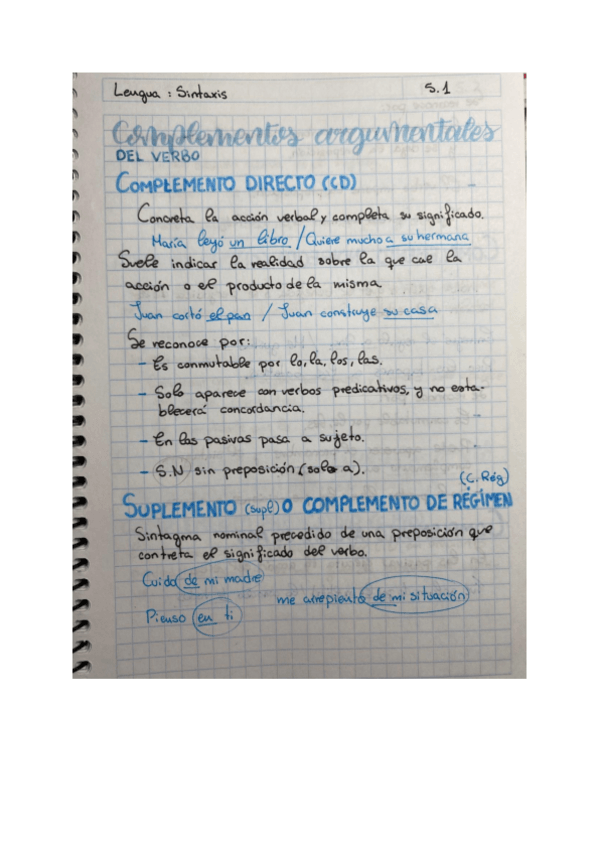 Lengua : Sintaxis
5.1
Complementos argumentales
DEL VERBO
COMPLEMENTO DIRECTO (CD)
Concreta la acción verbal y completa su significado.
María leyó un libro / Quiere mucho a su hermana
Suele indicar la realidad sobre la que cae la
acción o el producto de la misma
Juan cortó el pan / Juan construye su casa
Se reconoce por:
- Es conmutable por lo, la, los, las.
- Solo aparece con verbos predicativos, y no esta-
blecerá concordancia.
- En las pasivas pasa a sujeto.
- S.N sin preposición (solo a).
(C. Rég)
SUPLEMENTO (supl) O COMPLEMENTO DE RÉGIMEN
Sintagma nominal precedido de una preposición que
contreta el significado del verbo.
Cuido de mi madre
me arrepiento de mi situación
Pienso en ti